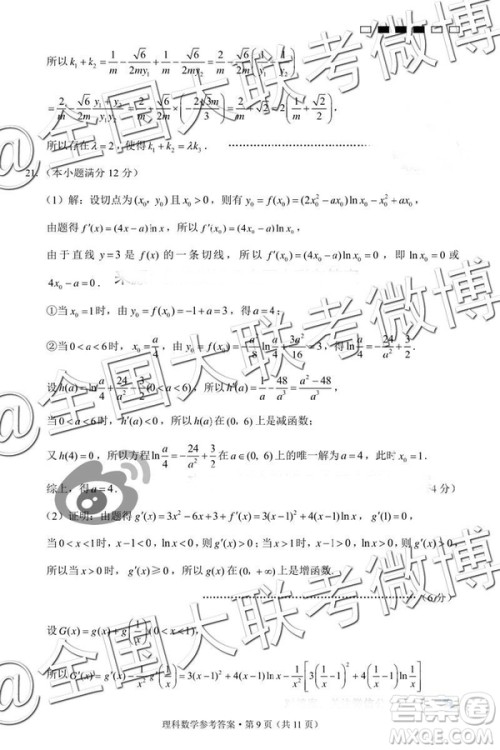 所以 k₁+k₂=1/m-√6/(2my₁)+1/m-√6/(2my₂)=2/m-√6/(2m)(1/y₁+1/y₂)
所以存在λ=2，使得 k₁+k₂=λk₃.
21.（本小题满分 12 分）
（1）解：设切点为(x₀, y₀)且 x₀>0，则有 y₀=f(x₀)=(2x₀²-ax₀)ln x₀-x₀²+ax₀，
由题得 f′(x)=(4x-a)ln x，所以 f′(x₀)=(4x₀-a)ln x₀，
由于直线 y=3 是 f(x) 的一条切线，所以 f′(x₀)=(4x₀-a)ln x₀=0，即 ln x₀=0 或
4x₀-a=0.
①当 x₀=1时，由 y₀=f(x₀)=-1+a=3，得 a=4；
②当 0<a<6时，x₀=a/4，由 y₀=f(x₀)=-a²/8 ln a/4+3a²/16=3，得 ln a/4=-24/a²+3/2.
设 h(a)=ln a/4+24/a²-3/2(0<a<6)，所以 h′(a)=1/a-48/a³=(a²-48)/a³，
当 0<a<6时，h′(a)<0，所以 h(a) 在(0, 6)上是减函数；
又 h(4)=0，所以方程 ln a/4=-24/a²+3/2 在 a∈(0, 6)上的唯一解为 a=4，此时 x₀=1.
综上，得 a=4.
4 分）
（2）证明：由题得 g′(x)=3x²-6x+3+f′(x)=3(x-1)²+4(x-1)ln x，g′(1)=0，
当 0<x<1时，x-1<0，ln x<0，则 g′(x)>0；当 x>1时，x-1>0，ln x>0，则 g′(x)>0，
所以当 x>0时，g′(x)≥0，所以 g(x) 在(0, +∞)上是增函数.
（6分）
设 G(x)=g(x)+g(1/x)(0<x<1)，
所以 G′(x)=g′(x)-1/x² g′(1/x)=3(x-1)²+4(x-1)ln x-1/x²[3(1/x-1)²+4(1/x-1)ln 1/x]
理科数学参考答案·第 9 页（共 11 页）
@全国大联考微博
@全国大联考微博
@全国大联考微博